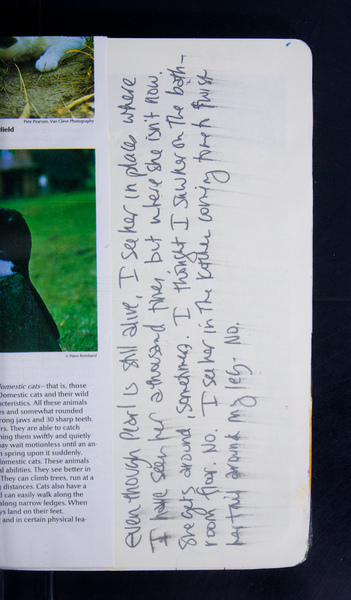 Pete Pearson, Van Cleve Photography
field
© Hans Reinhard
domestic cats – that is, those
Domestic cats and their wild
acteristics. All these animals
es and somewhat rounded
rong jaws and 30 sharp teeth.
ers. They are able to catch
ning them swiftly and quietly
ay wait motionless until an an-
n spring upon it suddenly.
domestic cats. These animals
al abilities. They see better in
They can climb trees, run at a
g distances. Cats also have a
d can easily walk along the
along narrow ledges. When
ys land on their feet.
and in certain physical fea-
Even though Pearl is still alive, I see her in places where
I have seen her a thousand times but where she isn't now.
She gets around, sometimes. I thought I saw her on the bath-
room floor. No. I see her in the kitchen coming to
her tail around my leg. No.